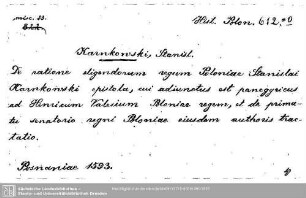 misc. 33.
Hist. Polon. 612, 20
Karnkowski, Stanisl.
De ratione eligendorum regum Poloniae Stanislai
Karnkowski epistola, cui adiunctus est panegyricus
ad Henricum Valesium Poloniae regem, et de prima-
tu senatorio regni Poloniae eiusdem authoris trac-
tatio.
Posnaniae 1593.
Sächsische Landesbibliothek -
Staats- und Universitätsbibliothek Dresden